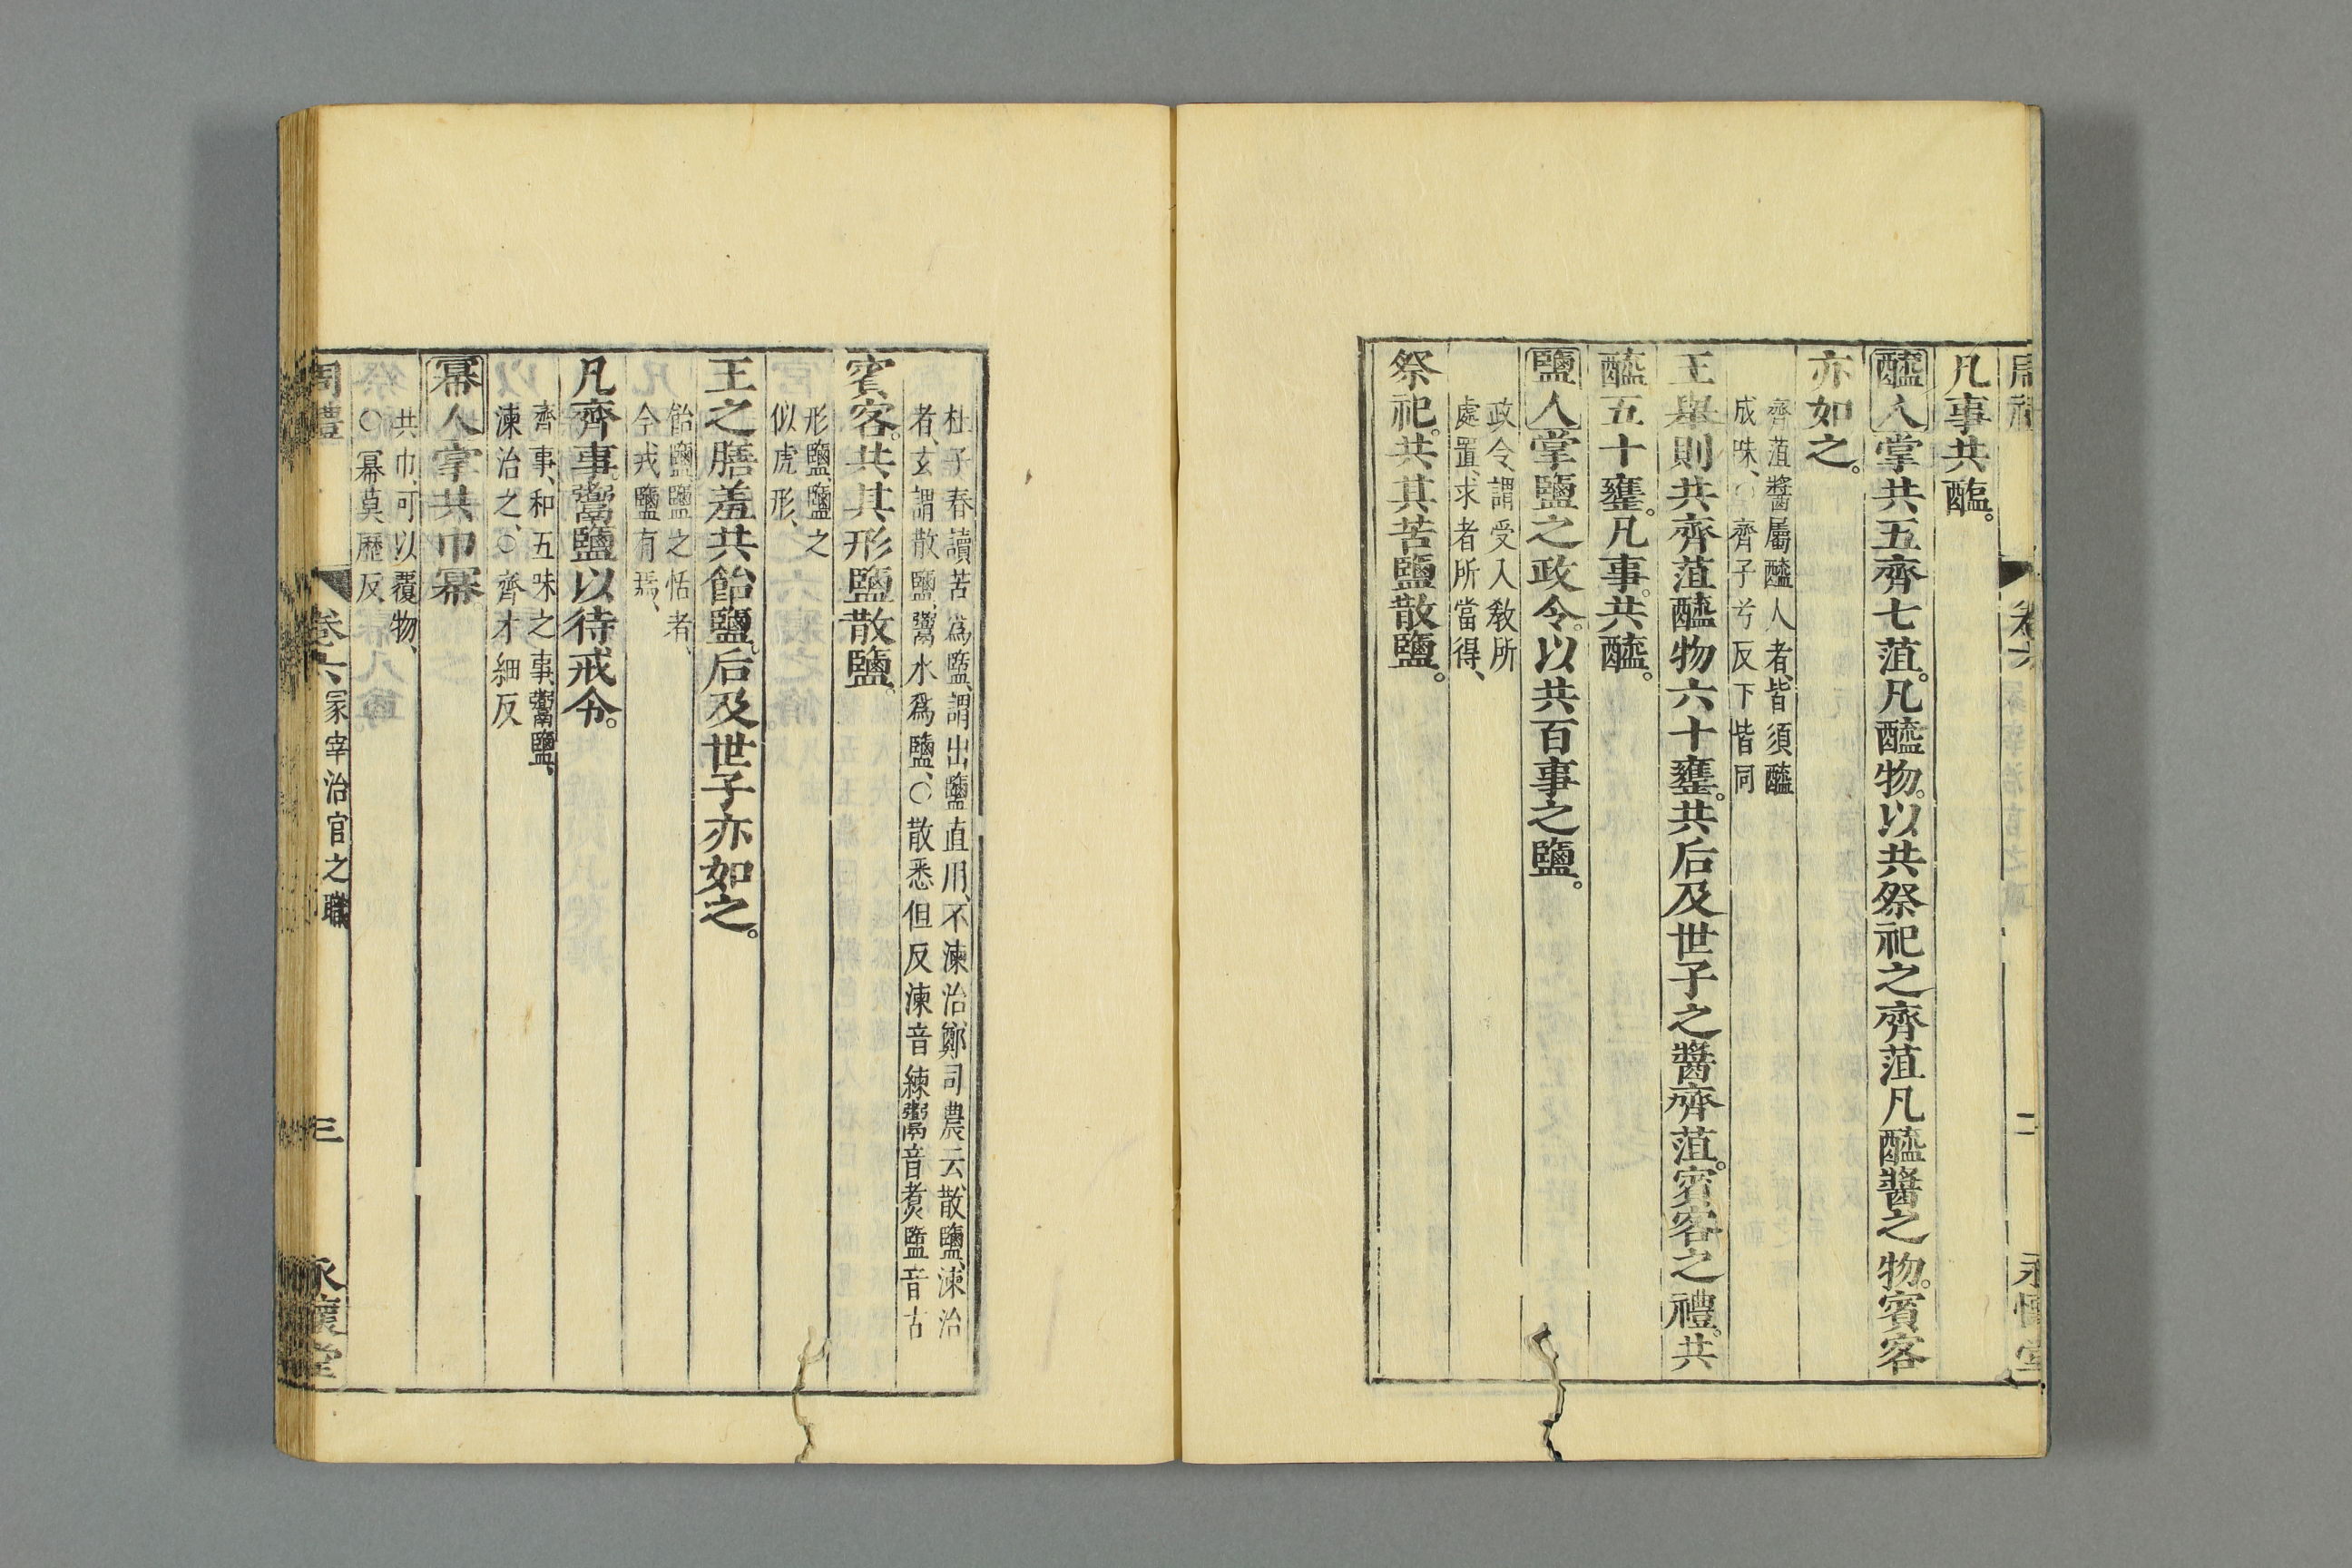 凡事共醢。
醯人掌共五齊七菹。凡醯物。以共祭祀之齊菹凡醯醬之物。賓客
亦如之。
齊菹醬屬醯人者、皆須醯
成味、○齊子兮反下皆同
王舉則共齊菹醯物六十罋。共后及世子之醬齊菹。賓客之禮。共
醯五十罋。凡事。共醯。
鹽人掌鹽之政令。以共百事之鹽。
政令、謂受入敎所
處置、求者所當得、
祭祀。共其苦鹽散鹽。
杜子春讀苦爲盬、謂出鹽直用、不湅治、鄭司農云、散鹽、湅治
者、玄謂散鹽、鬻水爲鹽、○散悉但反湅音練鬻音煑盬音古
賓客。共其形鹽散鹽。
形鹽、鹽之
似虎形、
王之膳羞共飴鹽。后及世子亦如之。
飴鹽、鹽之恬者、
今戎鹽有焉、
凡齊事。鬻鹽以待戒令。
齊事、和五味之事、鬻鹽、
湅治之、○齊才細反
冪人掌共巾冪
共巾、可以覆物、
○冪莫歷反
周禮 卷六 冢宰治官之職 三 永懷堂